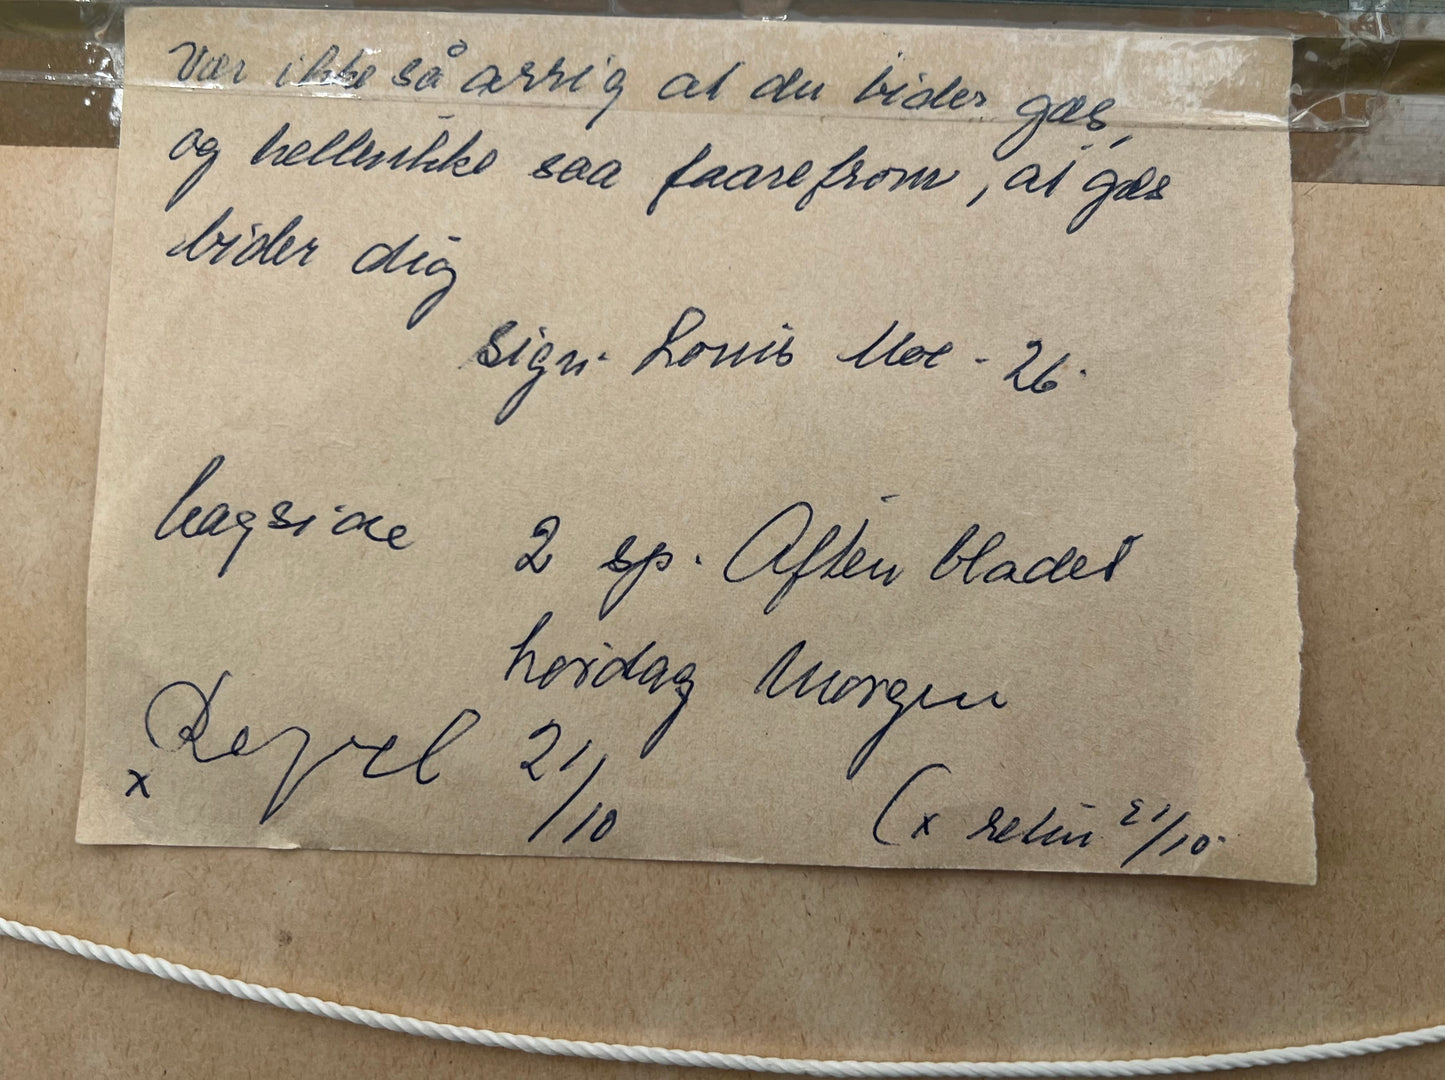 Vær ikke så arrig at du bider gæs,
og heller ikke saa faarefrom, at gæs
bider dig
sign. Louis Moe - 26.
bagside 2 sp. Aftenbladet
Lørdag Morgen
x 21/10 (x retur 21/10